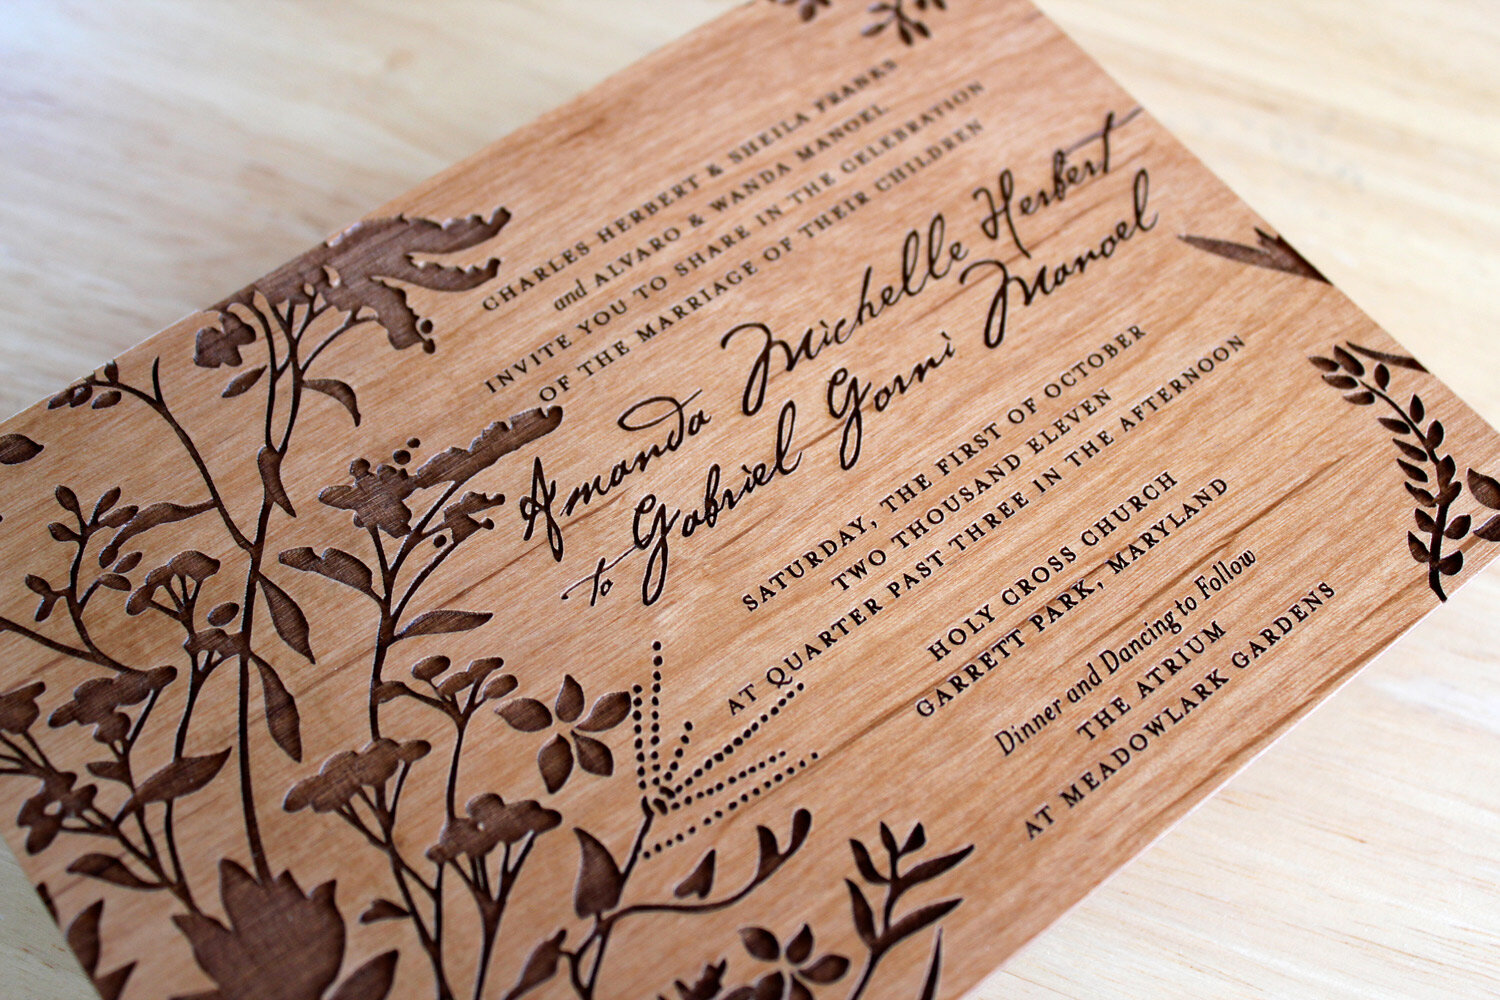 CHARLES HERBERT & SHEILA FRANKS
and ALVARO & WANDA MANOEL
INVITE YOU TO SHARE IN THE CELEBRATION
OF THE MARRIAGE OF THEIR CHILDREN
Amanda Michelle Herbert
to Gabriel Gorni Manoel
SATURDAY, THE FIRST OF OCTOBER
TWO THOUSAND ELEVEN
AT QUARTER PAST THREE IN THE AFTERNOON
HOLY CROSS CHURCH
GARRETT PARK, MARYLAND
Dinner and Dancing to Follow
THE ATRIUM
AT MEADOWLARK GARDENS